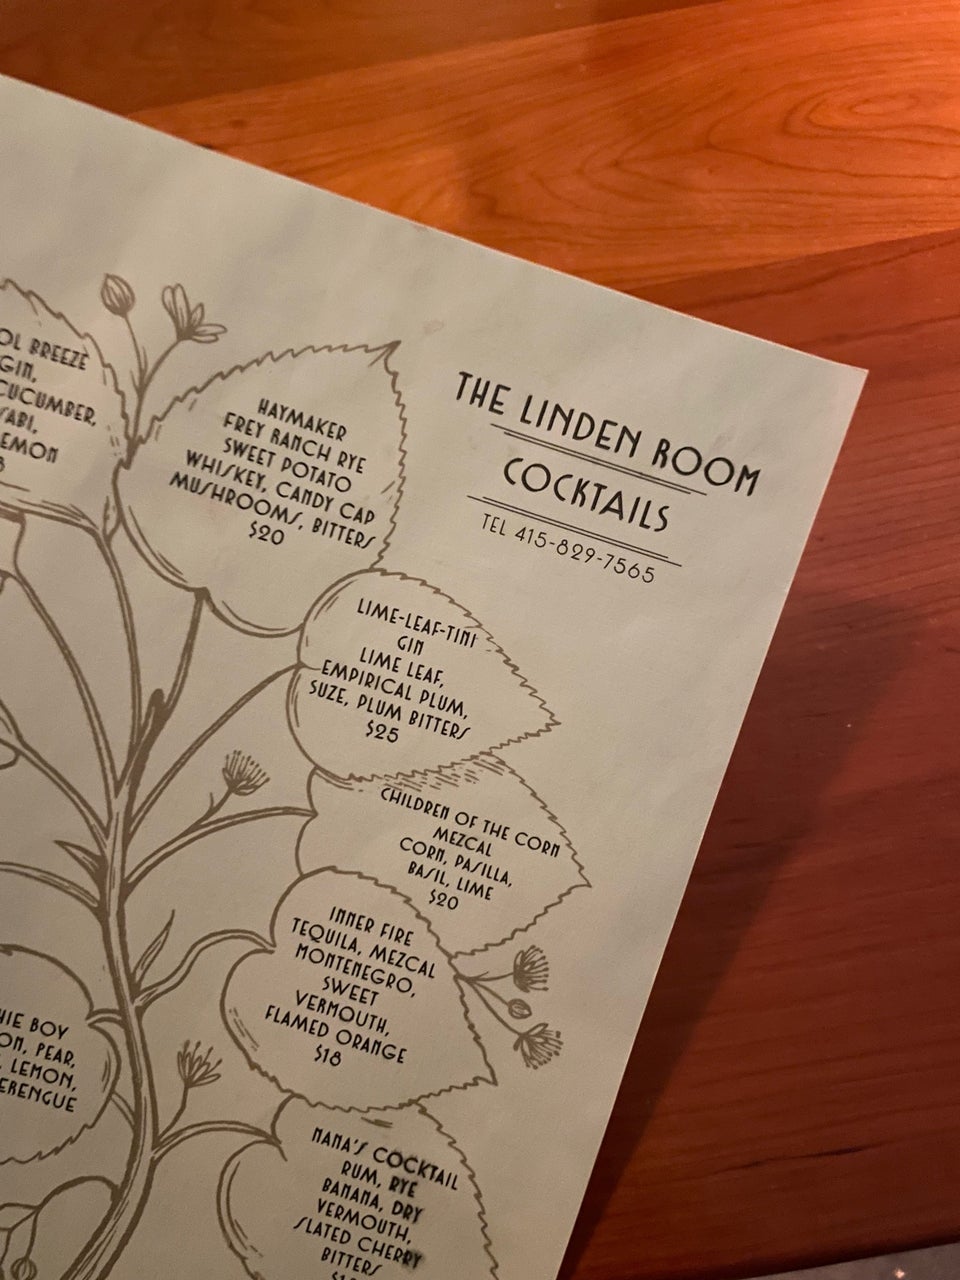 THE LINDEN ROOM
COCKTAILS
TEL 415-829-7565
BREEZE
GIN,
CUCUMBER,
HAYMAKER
FREY RANCH RYE
SWEET POTATO
WHISKEY, CANDY CAP
MUSHROOMS, BITTERS
$20
LIME-LEAF-TINI
GIN
LIME LEAF,
EMPIRICAL PLUM,
SUZE, PLUM BITTERS
$25
CHILDREN OF THE CORN
MEZCAL
CORN, PASILLA,
BASIL, LIME
$20
INNER FIRE
TEQUILA, MEZCAL
MONTENEGRO,
SWEET
VERMOUTH,
FLAMED ORANGE
$18
BOY
PEAR,
LEMON,
NANA'S COCKTAIL
RUM, RYE
BANANA, DRY
VERMOUTH,
SLATED CHERRY
BITTERS